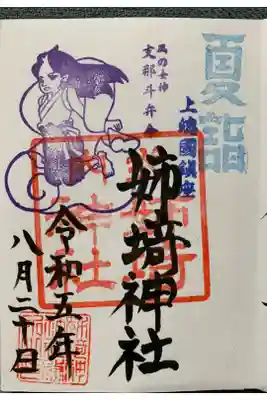 夏詣
上総國鎮座
風の女神
支那斗弁命
姉埼神社
令和五年
八月二十日